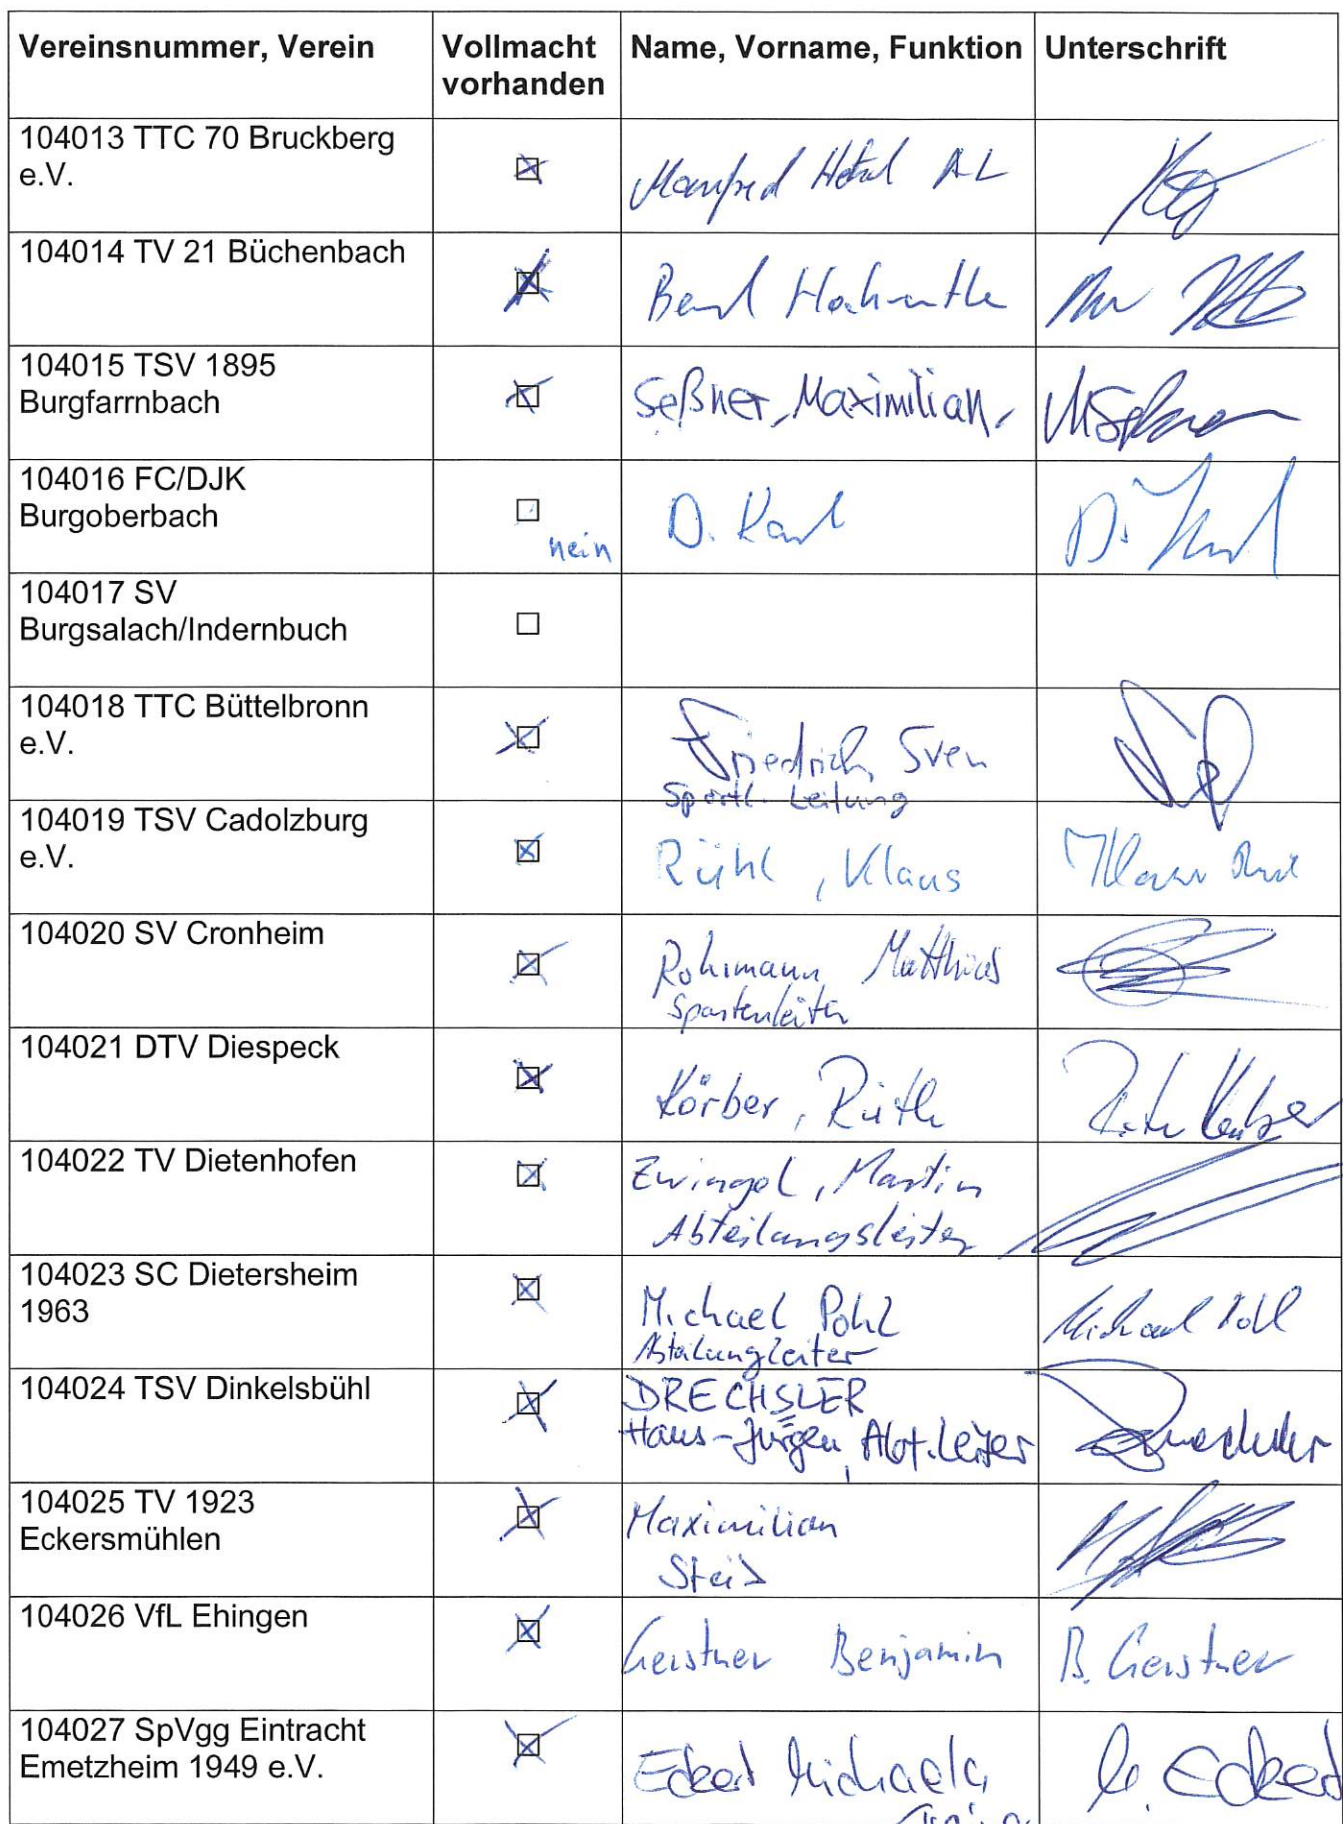 Vereinsnummer, Verein Vollmacht vorhanden Name, Vorname, Funktion Unterschrift
104013 TTC 70 Bruckberg
e.V.
Manfred AL
104014 TV 21 Büchenbach
Bernd
104015 TSV 1895
Burgfarrnbach
Seßner, Maximilian,
104016 FC/DJK
Burgoberbach
nein
D. Karl
104017 SV
Burgsalach/Indernbuch
104018 TTC Büttelbronn
e.V.
Friedrich, Sven
Sportl. Leitung
104019 TSV Cadolzburg
e.V.
Rühl, Klaus
104020 SV Cronheim
Rohmann Matthias
Spartenleiter
104021 DTV Diespeck
Körber,
104022 TV Dietenhofen
Zwingel, Martin
Abteilungsleiter
104023 SC Dietersheim
1963
Michael Pohl
Michael Pohl
Abteilungleiter
104024 TSV Dinkelsbühl
DRECHSLER
Hans-Jürgen, Abt.leiter
104025 TV 1923
Eckersmühlen
Maximilian
104026 VfL Ehingen
Gerstner Benjamin
B. Gerstner
104027 SpVgg Eintracht
Emetzheim 1949 e.V.
Eckert Michaela
Eckert